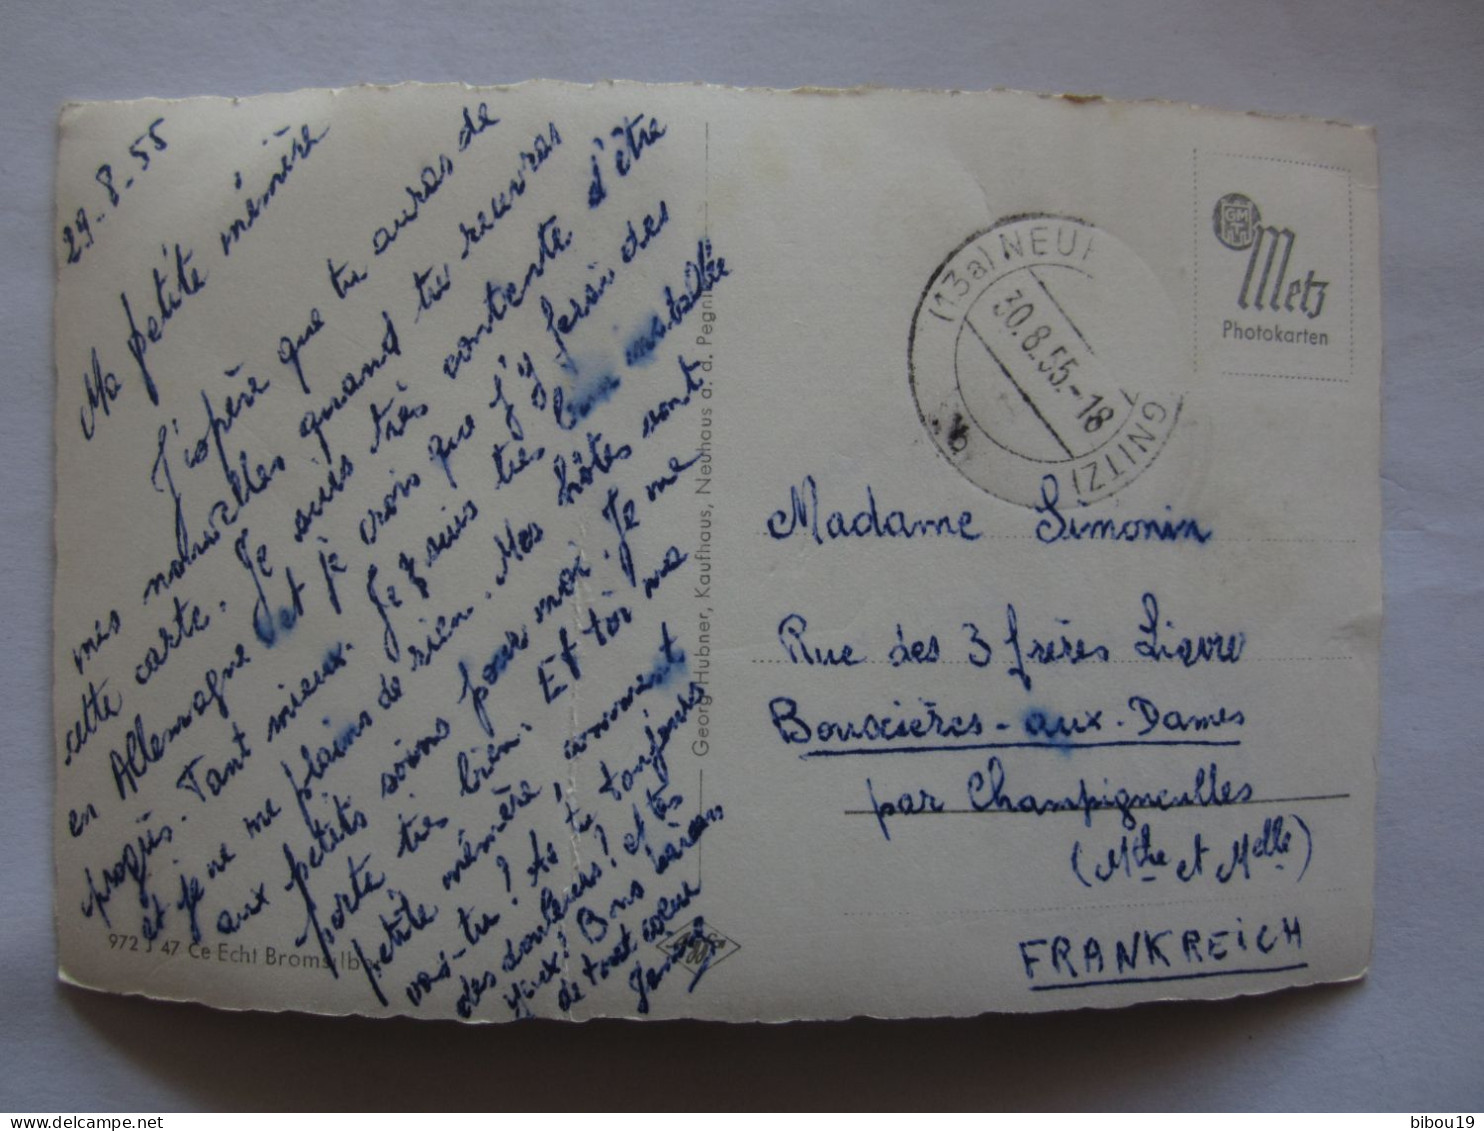 29-8-55
Ma petite mémère
J'espère que tu auras de
mes nouvelles quand tu reuvras
cette carte. Je suis très contente d'être
en Allemagne et je crois que j'y ferai des
progrès. Tant mieux. Je suis très bien installée
et je ne me plains de rien. Mes hôtes sont
aux petits soins pour moi. Je me
porte très bien. Et toi ma
petite mémère, comment
vas-tu? As-tu toujours
des douleurs? et tes
yeux? Bons baisers
de tout coeur
972 J 47 Ce Echt Broms.
Georg Hubner, Kaufhaus, Neuhaus a. d. Pegni
(13a) NEUH
30.8.55.-18
GNITZ)
GMT
Metz
Photokarten
Madame Simonin
Rue des 3 frères Lièvre
Bouxières-aux-Dames
par Champigneulles
(Mthe et Melle)
FRANKREiCH
bibou19